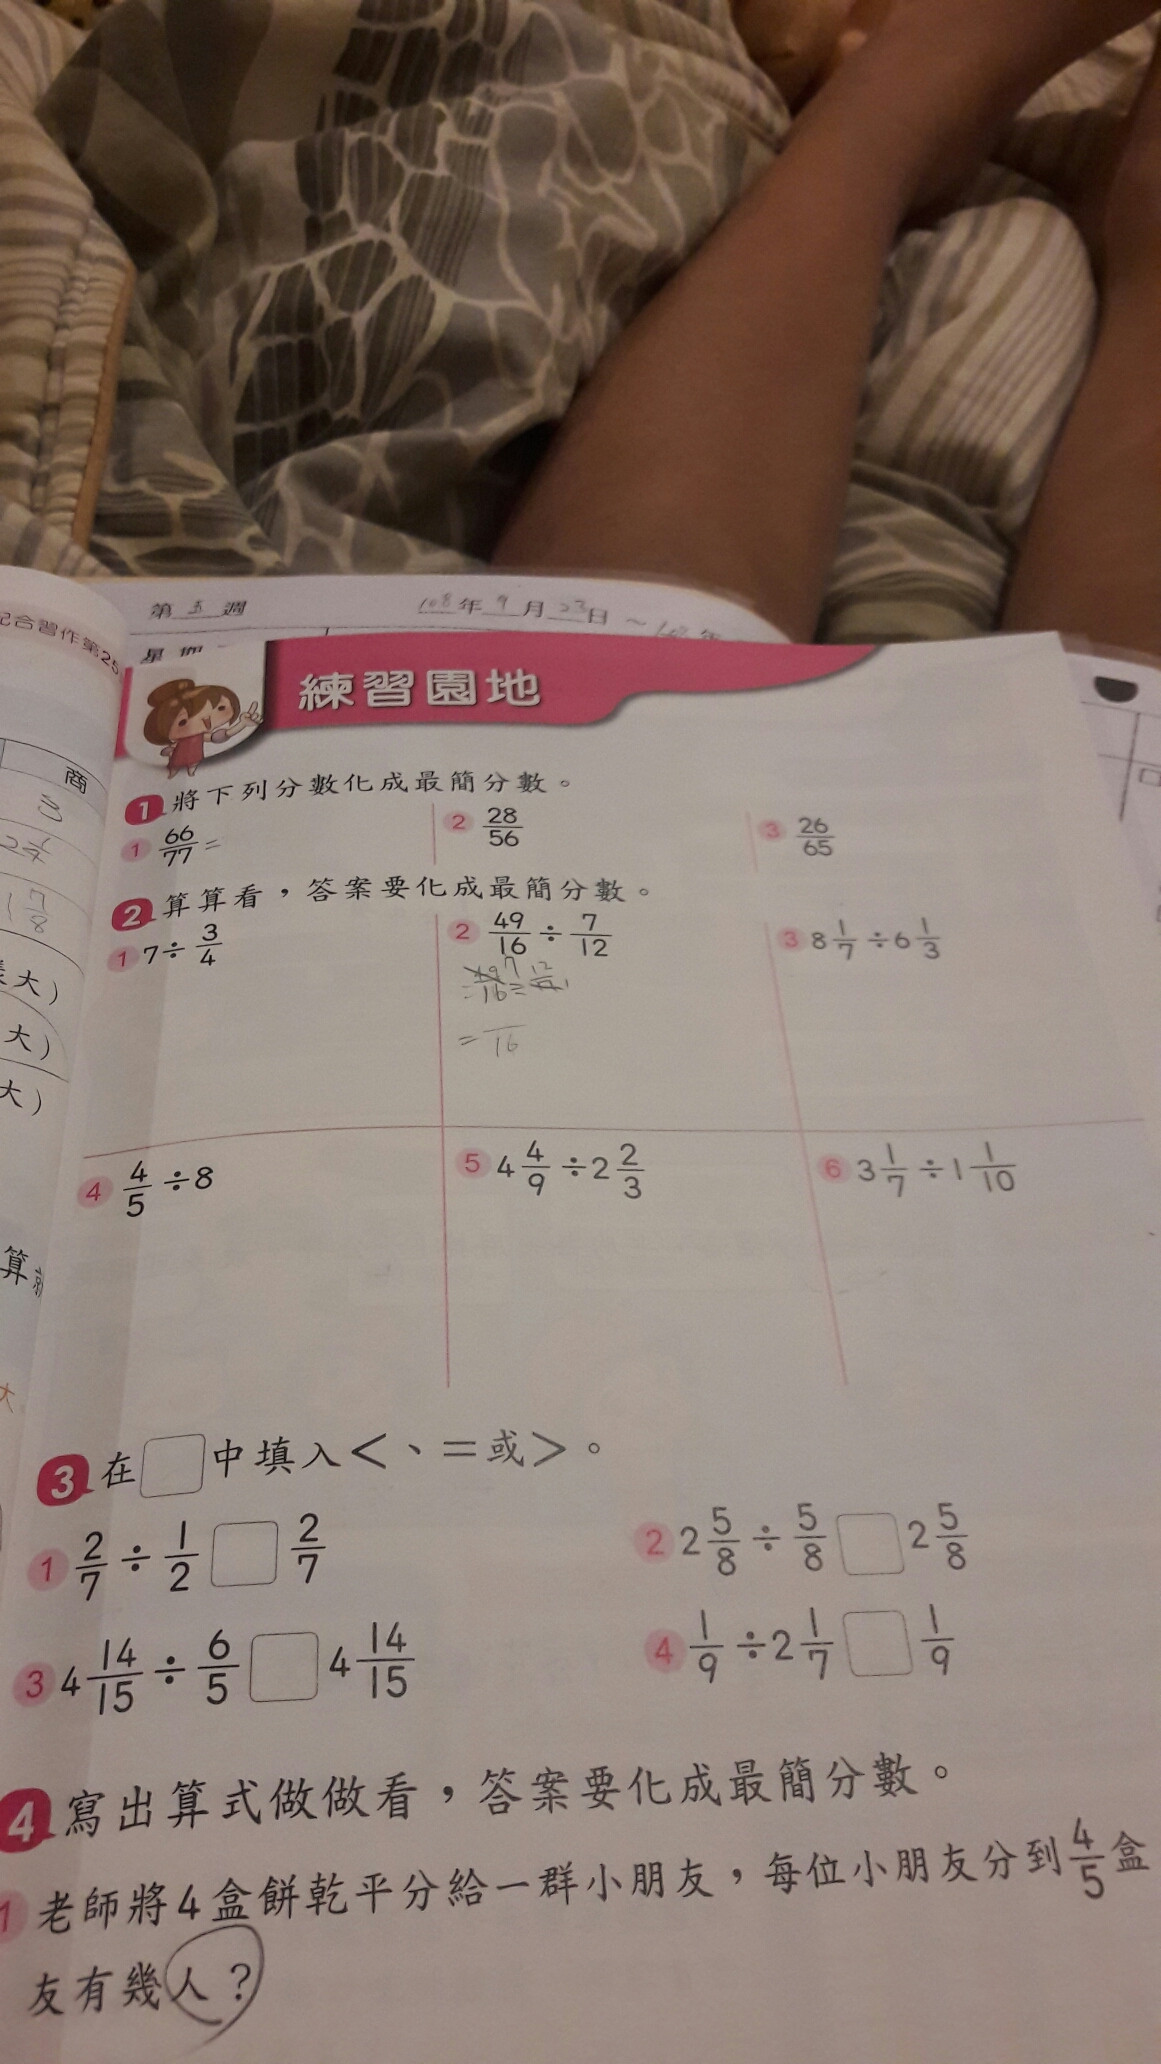 第五週 108年9月23日～
配合習作第25
練習園地
商
3
1 7/8
大)
大)
大)
算
大
1 將下列分數化成最簡分數。
1 66/77 =
2 28/56
3 26/65
2 算算看，答案要化成最簡分數。
1 7÷3/4
2 49/16÷7/12
3 8 1/7÷6 1/3
= /16
4 4/5÷8
5 4 4/9÷2 2/3
6 3 1/7÷1 1/10
3 在□中填入<、=或>。
1 2/7÷1/2□2/7
2 2 5/8÷5/8□2 5/8
3 4 14/15÷6/5□4 14/15
4 1/9÷2 1/7□1/9
4 寫出算式做做看，答案要化成最簡分數。
1 老師將4盒餅乾平分給一群小朋友，每位小朋友分到4/5盒
友有幾人？